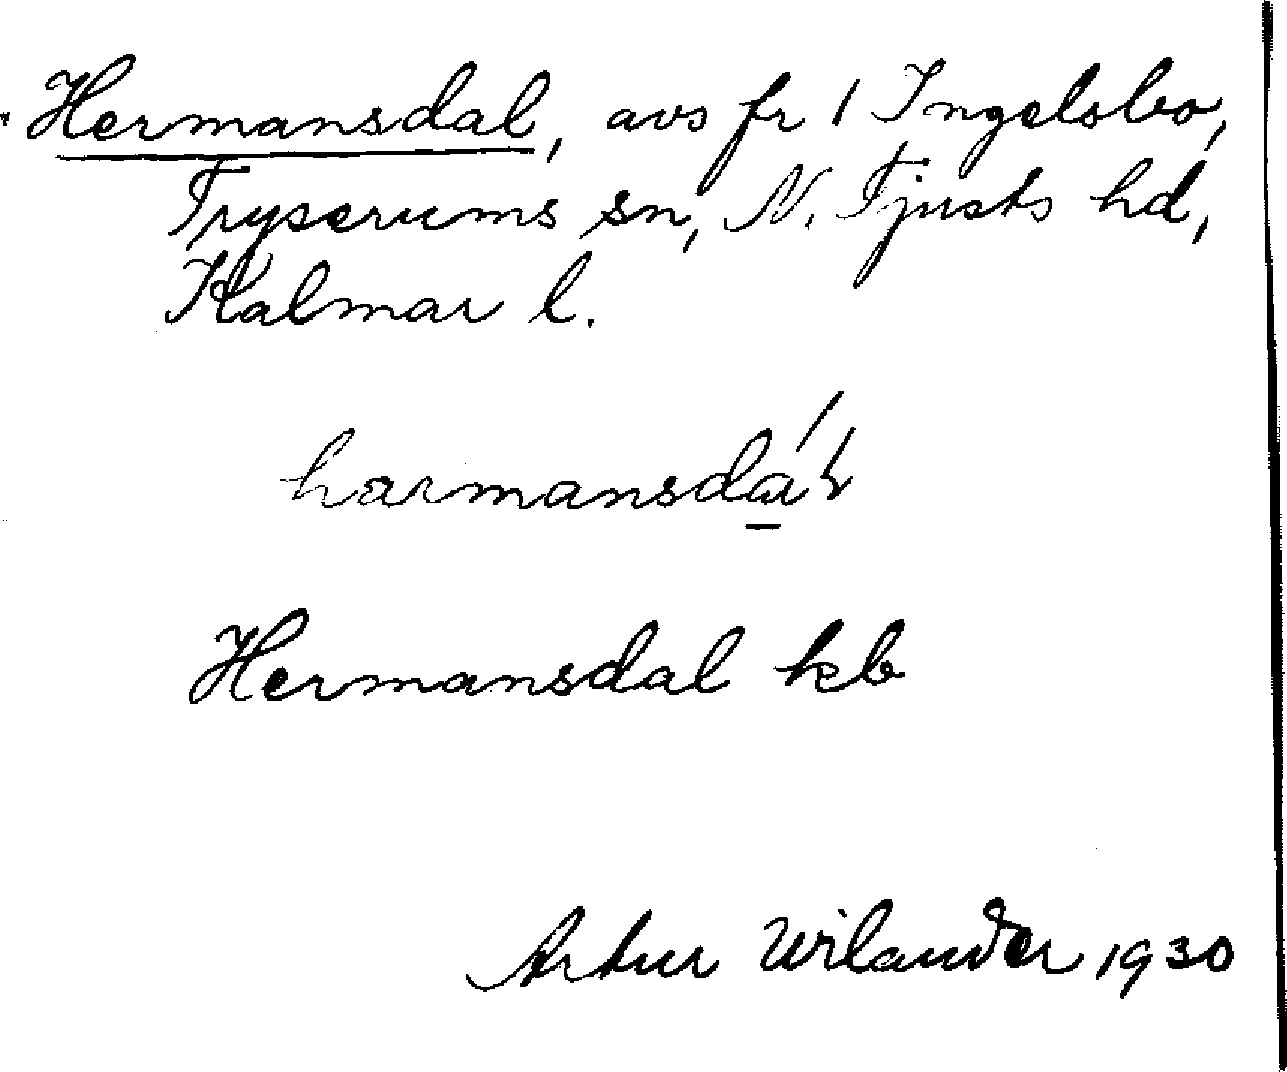 Hermansdal, avs fr 1 Ingelsbo,
Tryserums sn, N. Tjusts hd,
Kalmar l.
Hermansdal kb
Artur Wilander 1930